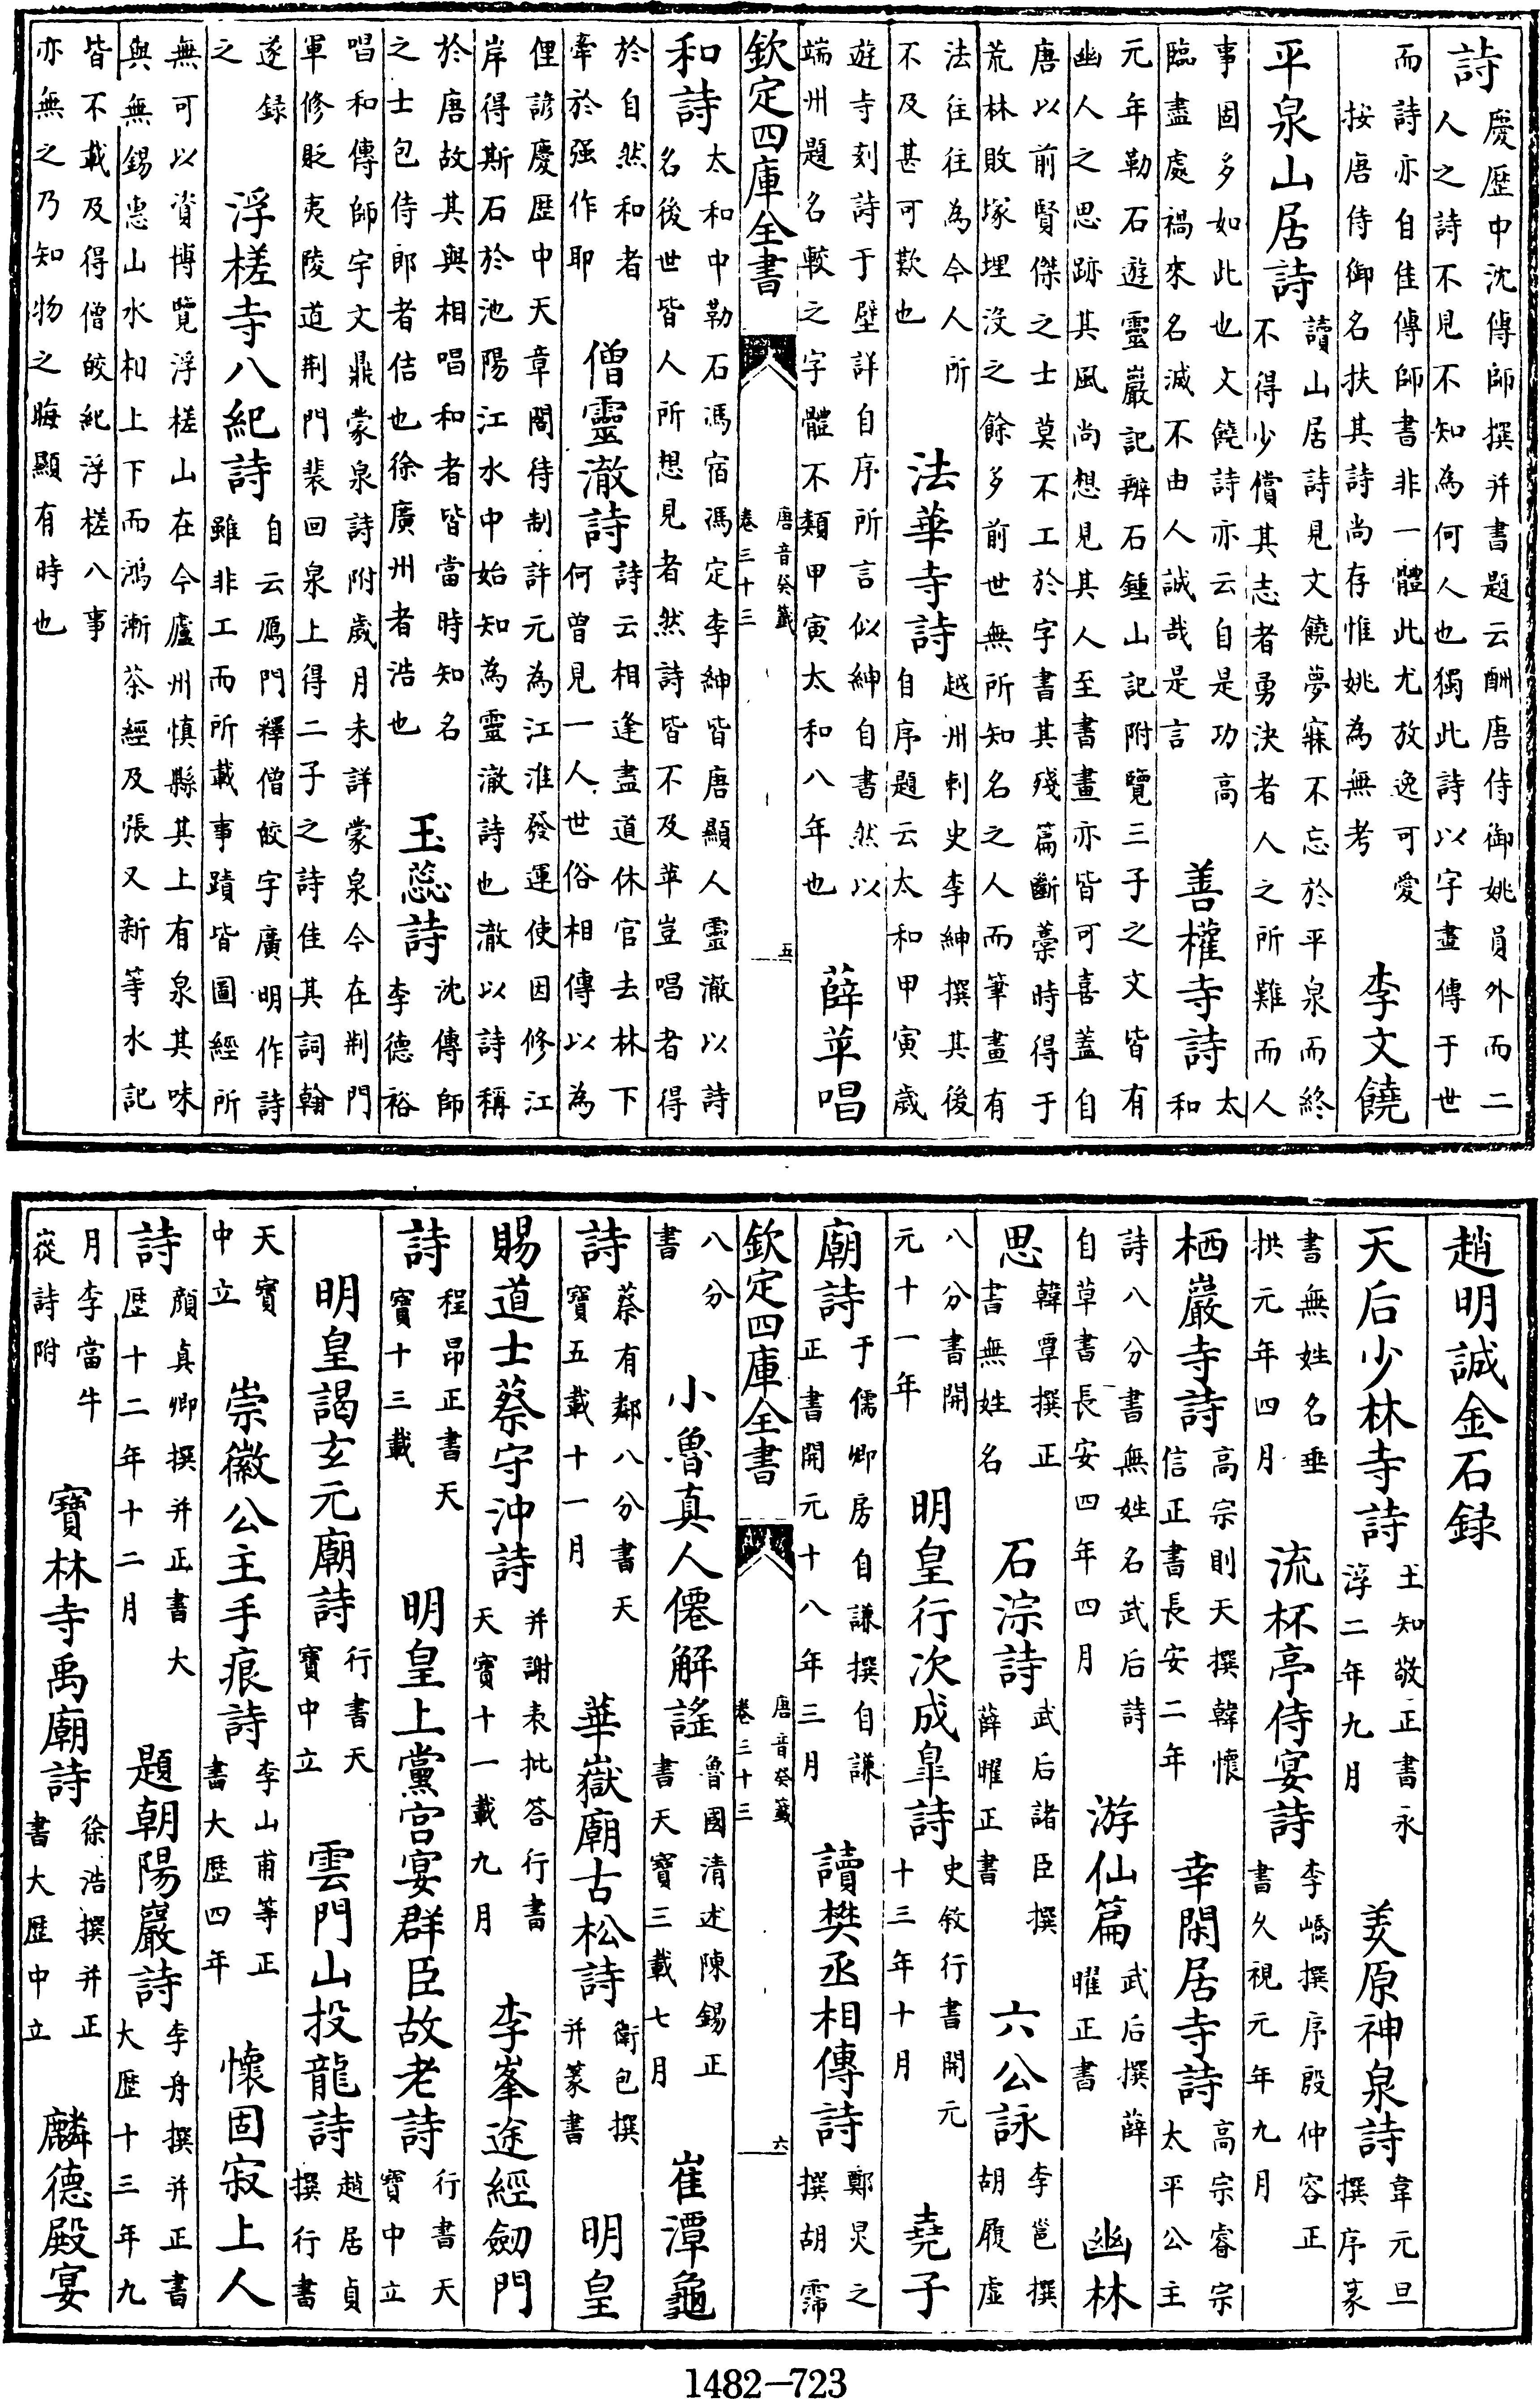 詩慶歷中沈傳師撰并書題云酬唐侍御姚員外而二人之詩不見不知為何人也獨此詩以字畫傳于世
而詩亦自佳傳師書非一體此尤放逸可愛按唐侍御名扶其詩尚存惟姚為無考　李文饒
平泉山居詩讀山居詩見文饒夢寐不忘於平泉而終不得少償其志者勇決者人之所難而人
事固多如此也文饒詩亦云自是功高臨盡處禍來名滅不由人誠哉是言　善權寺詩太和
元年勒石遊靈巖記辨石鍾山記附覽三子之文皆有幽人之思跡其風尚想見其人至書畫亦皆可喜蓋自
唐以前賢傑之士莫不工於字書其殘篇斷藁時得于荒林敗塚埋沒之餘多前世無所知名之人而筆畫有
法往往為今人所不及甚可歎也　法華寺詩越州刺史李紳撰其後自序題云太和甲寅歲
遊寺刻詩于壁詳自序所言似紳自書然以端州題名較之字體不類甲寅太和八年也　薛苹唱
欽定四庫全書　唐音癸籤卷三十三　五
和詩太和中勒石馮宿馮定李紳皆唐顯人靈澈以詩名後世皆人所想見者然詩皆不及苹豈唱者得
於自然和者牽於强作耶　僧靈澈詩詩云相逢盡道休官去林下何曾見一人世俗相傳以為
俚諺慶歷中天章閣待制許元為江淮發運使因修江岸得斯石於池陽江水中始知為靈澈詩也澈以詩稱
於唐故其與相唱和者皆當時知名之士包侍郎者佶也徐廣州者浩也　玉蕊詩沈傳師李德裕
唱和傳師字文鼎蒙泉詩附歲月未詳蒙泉今在荆門軍修貶夷陵道荆門裴回泉上得二子之詩佳其詞翰
遂録之　浮槎寺八紀詩自云鴈門釋僧皎字廣明作詩雖非工而所載事蹟皆圖經所
無可以資博覽浮槎山在今廬州慎縣其上有泉其味與無錫惠山水相上下而鴻漸茶經及張又新等水記
皆不載及得僧皎紀浮槎八事亦無之乃知物之晦顯有時也
趙明誠金石録
天后少林寺詩王知敬正書永淳二年九月　美原神泉詩韋元旦撰序篆
書無姓名垂拱元年四月　流杯亭侍宴詩李嶠撰序殷仲容正書久視元年九月
栖巖寺詩高宗則天撰韓懷信正書長安二年　幸閑居寺詩高宗睿宗太平公主
詩八分書無姓名武后詩自草書長安四年四月　游仙篇武后撰薛曜正書　幽林
思韓覃撰正書無姓名　石淙詩武后諸臣撰薛曜正書　六公詠李邕撰胡履虛
八分書開元十一年　明皇行次成臯詩史敘行書開元十三年十月　堯子
廟詩于儒卿房自謙撰自謙正書開元十八年三月　讀樊丞相傳詩鄭炅之撰胡霈
欽定四庫全書　唐音癸籤卷三十三　六
八分書　小魯真人僊解謠魯國清述陳錫正書天寶三載七月　崔潭龜
詩蔡有鄰八分書天寶五載十一月　華嶽廟古松詩衛包撰并篆書　明皇
賜道士蔡守沖詩并謝表批答行書天寶十一載九月　李峯途經劒門
詩程昂正書天寶十三載　明皇上黨宮宴群臣故老詩行書天寶中立
明皇謁玄元廟詩行書天寶中立　雲門山投龍詩趙居貞撰行書
天寶中立　崇徽公主手痕詩李山甫等正書大歴四年　懷固寂上人
詩顏真卿撰并正書大歴十二年十二月　題朝陽巖詩李舟撰并正書大歴十三年九
月李當牛𡺽詩附　寶林寺禹廟詩徐浩撰并正書大歴中立　麟德殿宴
1482-723